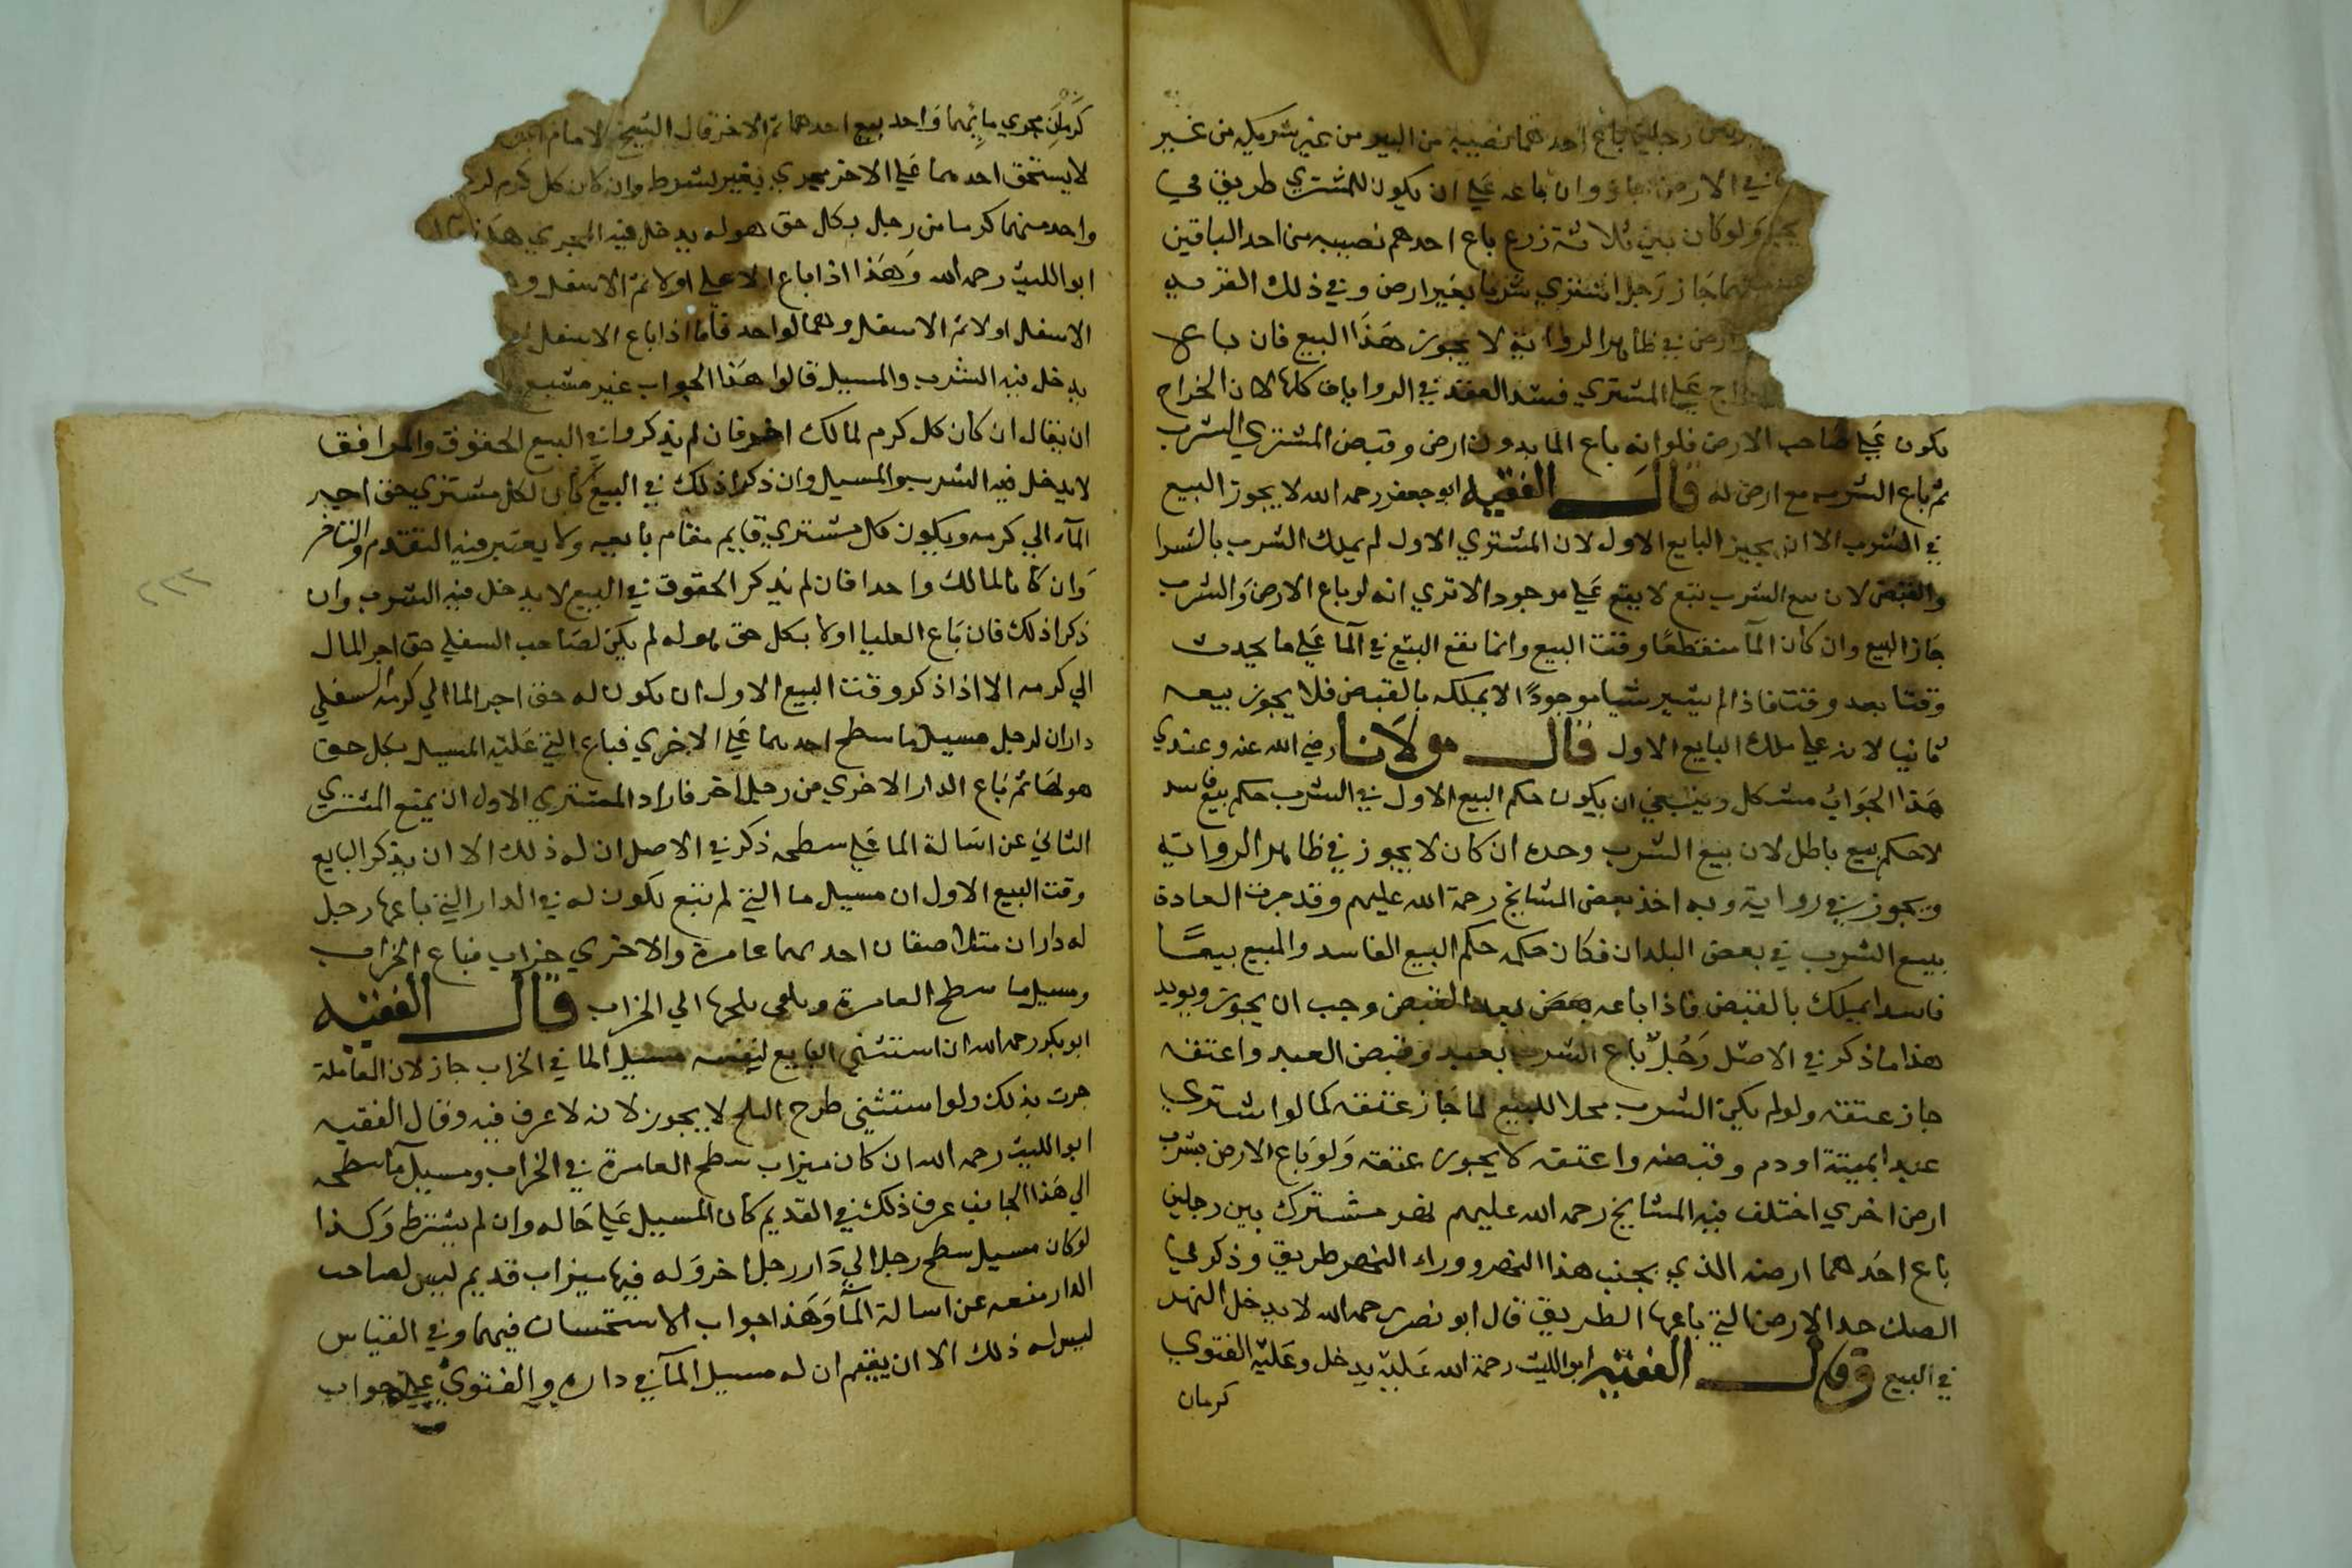 رجلين باع احدهما نصيبه من البير من غير شريكه من غير
في الارض جاز وان باعه علي ان يكون للمشتري طريق في
يجز ولو كان بين ثلاثة زرع باع احدهم نصيبه من احد الباقين
جاز رجل اشتري شربا بغير ارض وفي ذلك القريه
ارض في ظاهر الرواية لا يجوز هذا البيع فان باع
علي المشتري فسد العقد في الروايات كلها لان الخراج
يكون علي صاحب الارض فلو انه باع الما بدون ارض وقبض المشتري الشرب
ثم باع الشرب مع ارض له قال الفقيه ابو جعفر رحمه الله لا يجوز البيع
في الشرب الا ان يجيز البايع الاول لان المشتري الاول لم يملك الشرب بالشرا
والقبض لان بيع الشرب تبع لا يقع علي موجود الا تري انه لو باع الارض والشرب
جاز البيع وان كان المآ منقطعا وقت البيع وانما يقع البيع في المآ علي ما يحدث
وقتا بعد وقت فاذا لم يشتر شيا موجودا لا يملكه بالقبض فلا يجوز بيعه
ثانيا لانه علي ملك البايع الاول قال مولانا رضي الله عنه وعندي
هذا الجواب مشكل وينبغي ان يكون حكم البيع الاول في الشرب حكم بيع فاسد
لا حكم بيع باطل لان بيع الشرب وحده ان كان لا يجوز في ظاهر الرواية
ويجوز في رواية وبه اخذ بعض المشايخ رحمة الله عليهم وقد جرت العادة
ببيع الشرب في بعض البلدان فكان حكمه حكم البيع الفاسد والمبيع بيعا
فاسدا يملك بالقبض فاذا باعه بعد القبض وجب ان يجوز ويويد
هذا ما ذكر في الاصل رجل باع الشرب بعبد وقبض العبد واعتقه
جاز عتقه ولو لم يكن الشرب محلا للبيع لما جاز عتقه كما لو اشتري
عبدا بميتة او دم وقبضه واعتقه لا يجوز عتقه ولو باع الارض بشرب
ارض اخري اختلف فيه المشايخ رحمه الله عليهم نهر مشترك بين رجلين
باع احدهما ارضه الذي بجنب هذا النهر ووراء النهر طريق وذكر في
الصك حد الارض التي باعها الطريق قال ابو نصر رحمه الله لا يدخل النهر
في البيع وقال الفقيه ابو الليث رحمة الله عليه يدخل وعليه الفتوي
كرمان
كرمان مجري مايهما واحد بيع احدهما ثم الاخر قال الشيخ الامام
لا يستحق احدهما علي الاخر مجري بغير شرط وان كان كل كرم
واحد منهما كرما من رجل بكل حق هو له يدخل فيه المجري هذا
ابو الليث رحمه الله وهذا اذا باع الاعلي اولا ثم الاسفل
الاسفل اولا ثم الاسفل وهما لواحد فاما اذا باع الاسفل
يدخل فيه الشرب والمسيل قالوا هذا الجواب غير مشبع
ان يقال ان كان كل كرم لمالك اخر فان لم يذكروا في البيع الحقوق والمرافق
لا يدخل فيه الشرب والمسيل وان ذكرا ذلك في البيع كان لكل مشتري حق اجر
المآء الي كرمه ويكون كل مشتري قايم مقام بايعه ولا يعتبر فيه التقدم والتاخر
وان كانا لمالك واحدا فان لم يذكر الحقوق في البيع لا يدخل فيه الشرب وان
ذكرا ذلك فان باع العليا اولا بكل حق هو له لم يكن لصاحب السفلي حق اجر المال
الي كرمه الا اذا ذكر وقت البيع الاول ان يكون له حق اجر الما الي كرمه السفلي
داران لرجل مسيل ما سطح احدهما علي الاخري فباع التي عليه المسيل بكل حق
هو لها ثم باع الدار الاخري من رجل اخر فاراد المشتري الاول ان يمنع المشتري
الثاني عن اسالة الما علي سطحه ذكر في الاصل ان له ذلك الا ان يذكر البايع
وقت البيع الاول ان مسيل ما التي لم تبع يكون له في الدار التي باعها رجل
له داران متلاصقان احدهما عامرة والاخري خراب فباع الخراب
ومسيل ما سطح العامرة ويلقي ثلجها الي الخراب قال الفقيه
ابو بكر رحمه الله ان استثني البايع لنفسه مسيل الما في الخراب جاز لان العاملة
جرت بذلك ولو استثني طرح الثلج لا يجوز لانه لا عرف فيه وقال الفقيه
ابو الليث رحمه الله ان كان ميزاب سطح العامرة في الخراب ومسيل مآ سطحه
الي هذا الجانب عرف ذلك في القديم كان المسيل علي حاله وان لم يشترط وكذا
لو كان مسيل سطح رجل الي دار رجل اخر وله فيها ميزاب قديم ليس لصاحب
الدار منعه عن اسالة المآ وهذا جواب الاستحسان فيهما وفي القياس
ليس له ذلك الا ان يقيم ان له مسيل المآ في داره والفتوي علي جواب
٢٢٢